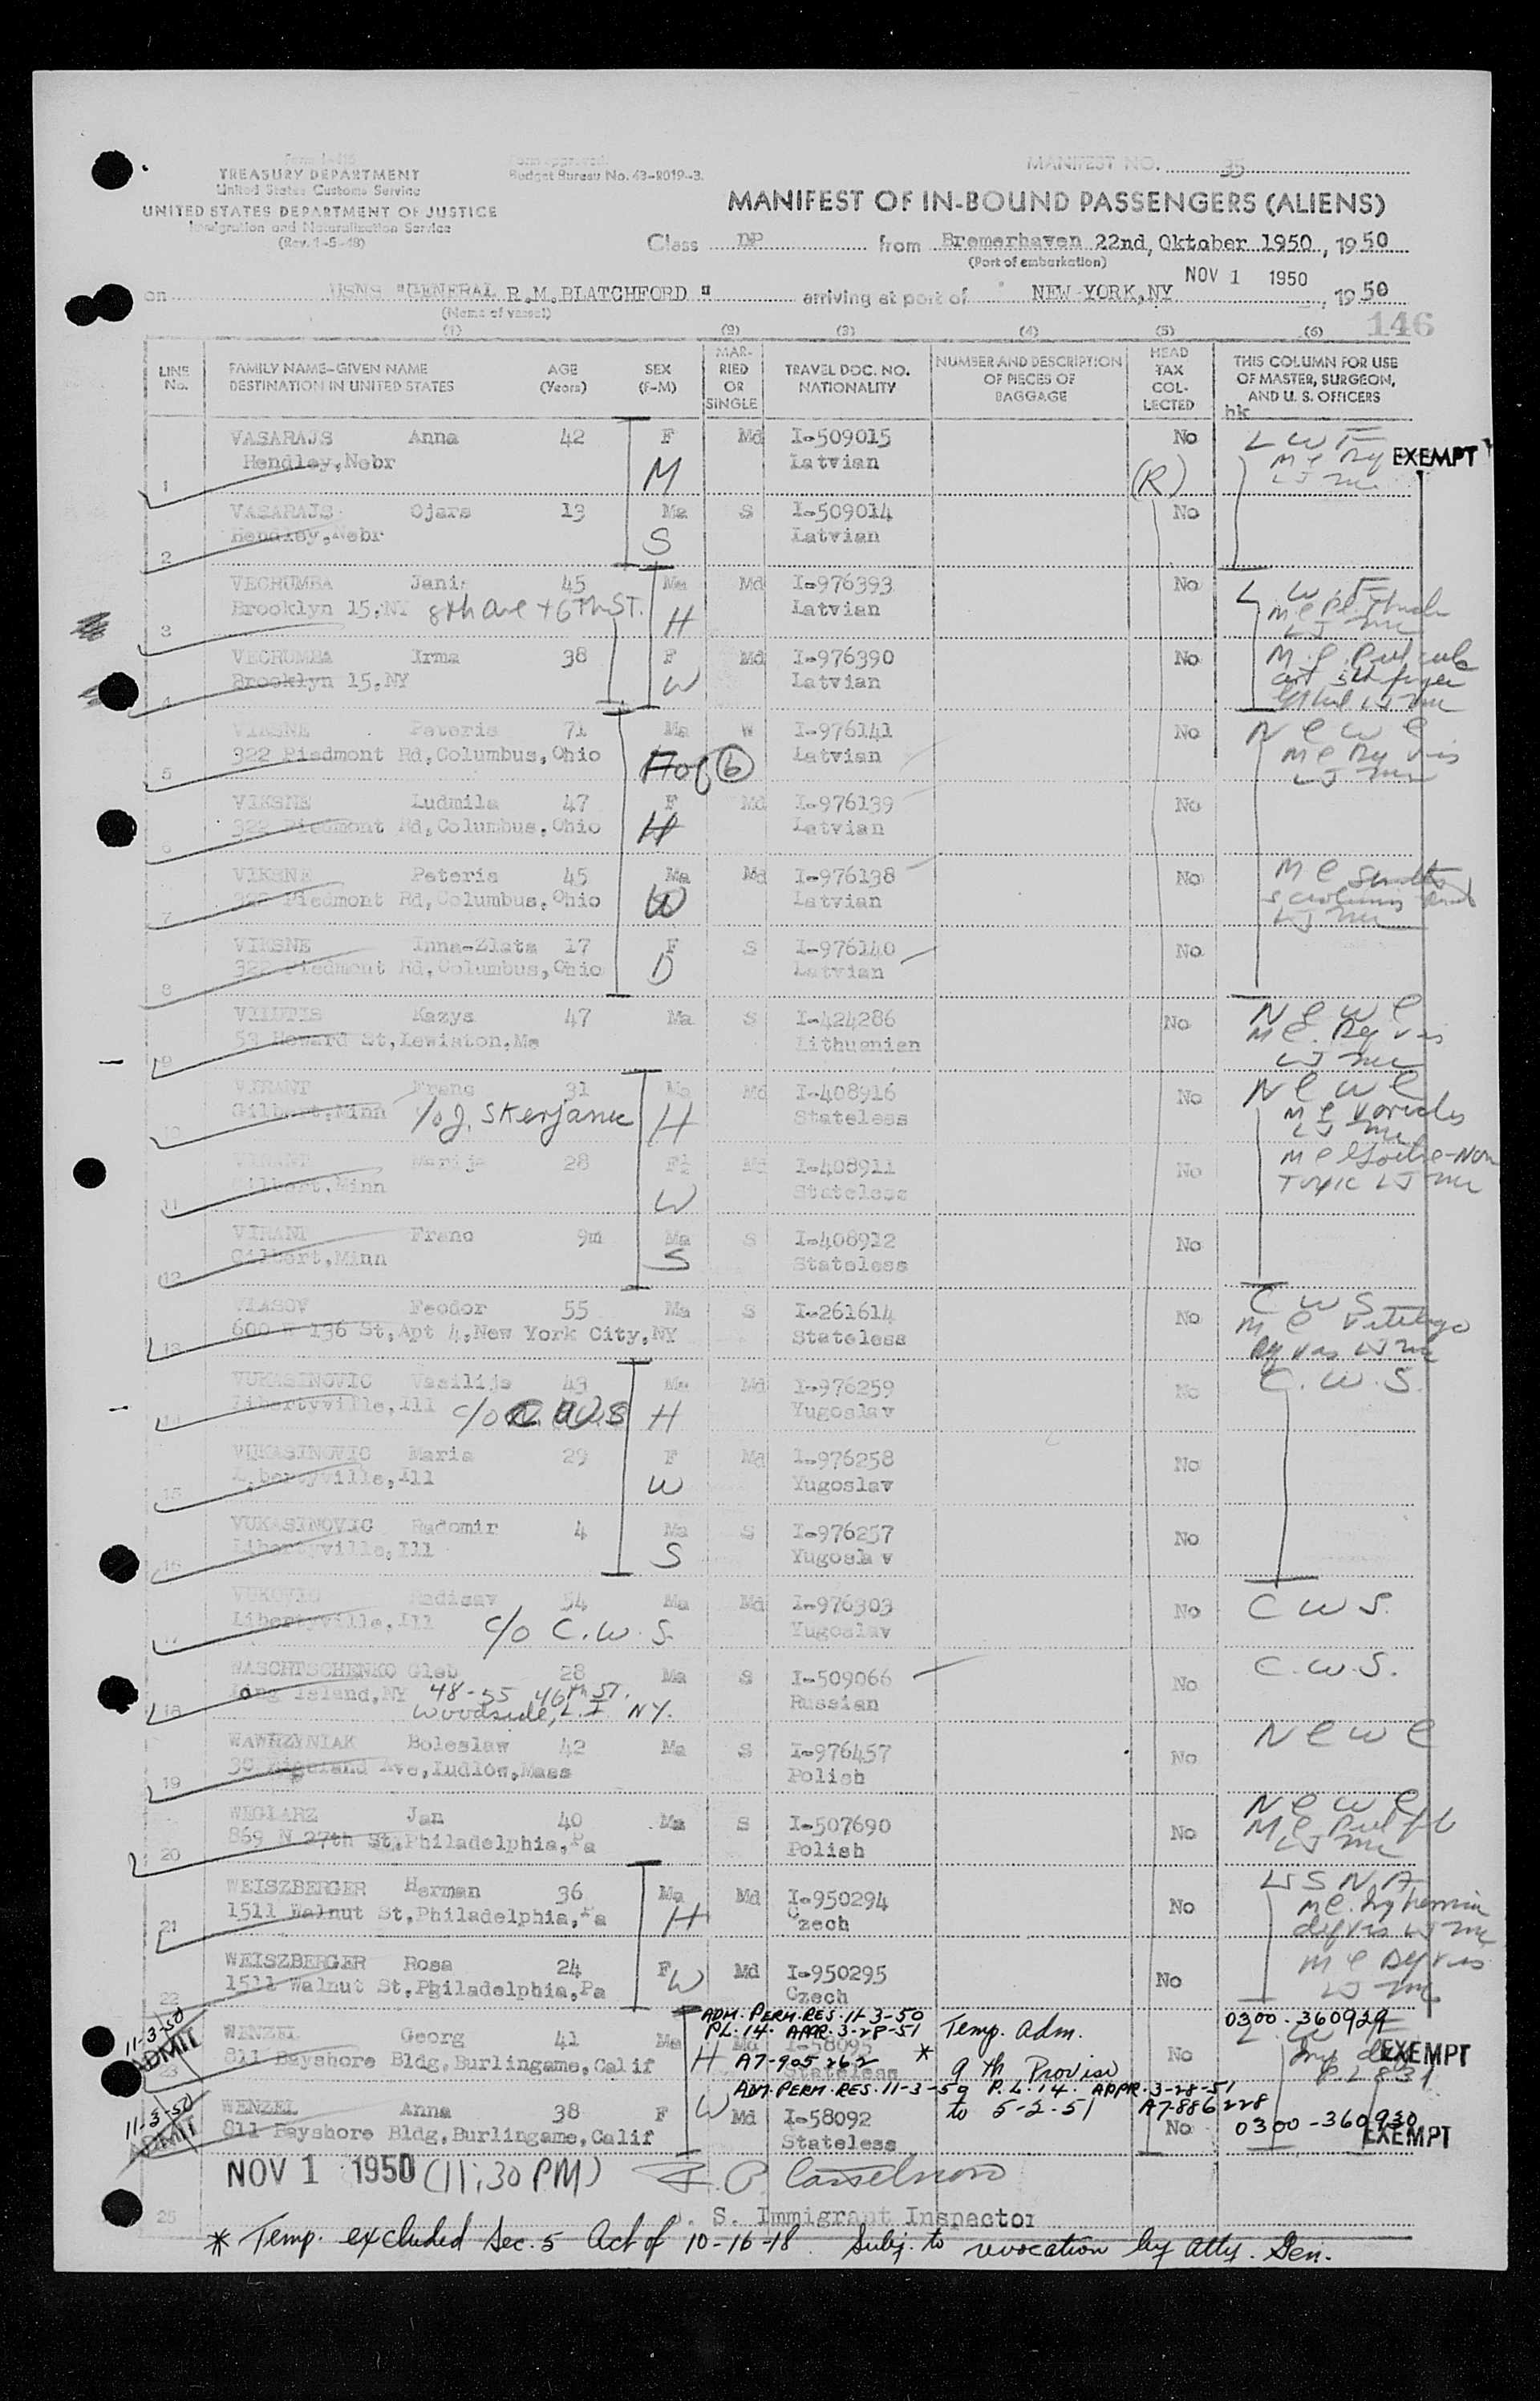 Form I-416
TREASURY DEPARTMENT
United States Customs Service
UNITED STATES DEPARTMENT OF JUSTICE
Immigration and Naturalization Service
(Rev. 1-5-48)
Form approved.
Budget Bureau No. 43-R019-3.
MANIFEST NO. 35
MANIFEST OF IN-BOUND PASSENGERS (ALIENS)
Class DP from Bremerhaven 22nd, Oktober 1950, 1950
(Port of embarkation)
on USNS "GENERAL R.M.BLATCHFORD" arriving at port of NEW YORK,NY NOV 1 1950, 1950
(Name of vessel)
146
(1) (2) (3) (4) (5) (6)
LINE No.
FAMILY NAME-GIVEN NAME
DESTINATION IN UNITED STATES
AGE (Years)
SEX (F-M)
MARRIED OR SINGLE
TRAVEL DOC. NO.
NATIONALITY
NUMBER AND DESCRIPTION OF PIECES OF BAGGAGE
HEAD TAX COLLECTED
THIS COLUMN FOR USE OF MASTER, SURGEON, AND U. S. OFFICERS
hk
VASARAJS Anna 42 F Md I-509015 No L W F
1 Hendley,Nebr M Latvian (R) EXEMPT
VASARAJS Ojars 13 Ma S I-509014 No
2 Hendley,Nebr S Latvian
VECRUMBA Janis 45 Ma Md I-976393 No L W F
3 Brooklyn 15,NY 8th Ave + 6th ST. H Latvian
VECRUMBA Irma 38 F Md I-976390 No
4 Brooklyn 15,NY W Latvian
VIKSNE Peteris 71 Ma W I-976141 No N C W C
5 322 Piedmont Rd,Columbus,Ohio F of (6) Latvian
VIKSNE Ludmila 47 F Md I-976139 No
6 322 Piedmont Rd,Columbus,Ohio H Latvian
VIKSNE Peteris 45 Ma Md I-976138 No
7 322 Piedmont Rd,Columbus,Ohio W Latvian
VIKSNE Inna-Zlata 17 F S I-976140 No
8 322 Piedmont Rd,Columbus,Ohio D Latvian
VILUTIS Kazys 47 Ma S I-424286 No N C W C
9 59 Howard St,Lewiston,Me Lithuanian
VIRANT Franc 31 Ma Md I-408916 No N C W C
10 Gilbert,Minn c/o J. Skerjanc H Stateless
VIRANT Marija 28 F Md I-408911 No
11 Gilbert,Minn W Stateless
VIRANT Franc 9m Ma S I-408912 No
12 Gilbert,Minn S Stateless
VLASOV Feodor 55 Ma S I-261614 No C W S
13 600 W 136 St,Apt 4,New York City,NY Stateless
VUKASINOVIC Vasilije 43 Ma Md I-976259 No C.W.S.
14 Libertyville,Ill c/o C.W.S H Yugoslav
VUKASINOVIC Maria 29 F Md I-976258 No
15 Libertyville,Ill W Yugoslav
VUKASINOVIC Radomir 4 Ma S I-976257 No
16 Libertyville,Ill S Yugoslav
VUKOVIC Radisav 54 Ma Md I-976303 No C W S.
17 Libertyville,Ill c/o C.W.S. Yugoslav
WASCHTSCHENKO Gleb 28 Ma S I-509066 No C.W.S.
18 Long Island,NY 48-55 46th ST. Russian
Woodside, L.I NY.
WAWRZYNIAK Boleslaw 42 Ma S I-976457 No N C W C
19 30 Highland Ave,Ludlow,Mass Polish
WEGLARZ Jan 40 Ma S I-507690 No N C W C
20 869 N 27th St,Philadelphia,Pa Polish
WEISZBERGER Herman 36 Ma Md I-950294 No U S N A
21 1511 Walnut St,Philadelphia,Pa H Czech
WEISZBERGER Rosa 24 F Md I-950295 No
22 1511 Walnut St,Philadelphia,Pa W Czech
ADM. PERM. RES. 11-3-50
PL. 14. APPR. 3-28-51 Temp. adm. 0300-360929
11-3-50 ADMIT
WENZEL Georg 41 Ma Md I-58095 No
23 811 Bayshore Bldg,Burlingame,Calif H A7-905262 Stateless * 9th Proviso EXEMPT
ADM. PERM. RES. 11-3-50 P.L. 14. APPR. 3-28-51
to 5-2-51 A7-886228
11-3-50 ADMIT
WENZEL Anna 38 F W Md I-58092 No 0300-360930
811 Bayshore Bldg,Burlingame,Calif Stateless EXEMPT
NOV 1 1950 (11:30 PM)
25 U. S. Immigrant Inspector
* Temp. excluded Sec. 5 Act of 10-16-18. Subj. to revocation by Atty. Gen.